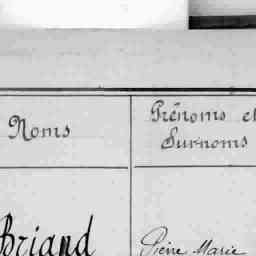 Noms
Prénoms et
Surnoms
Briand
Pierre Marie